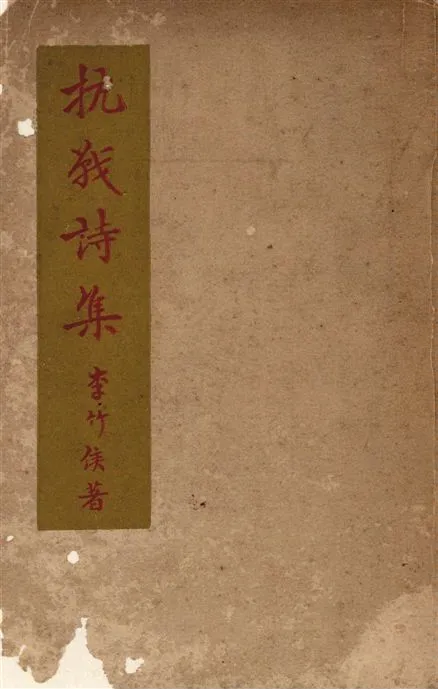 抗战詩集
李竹侯著